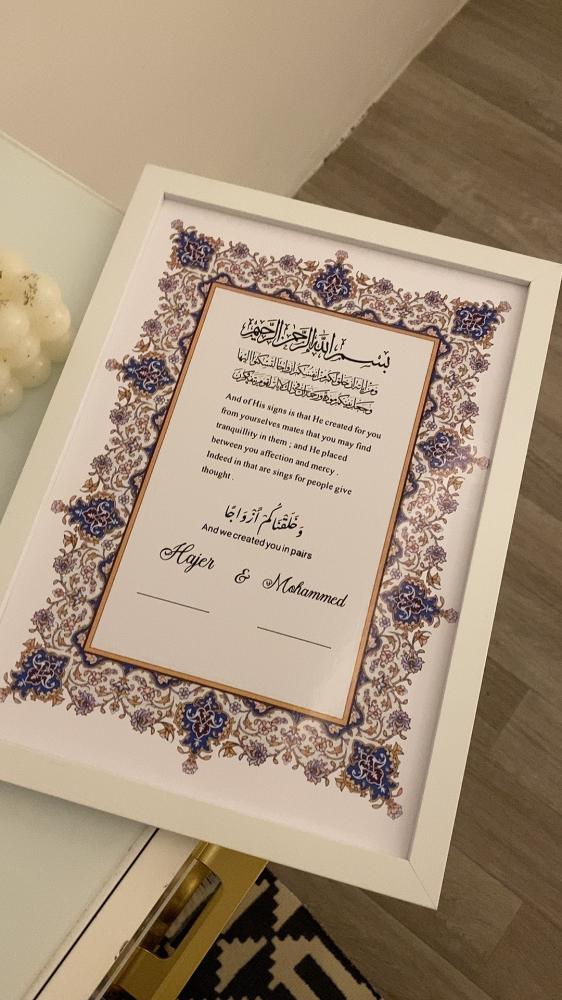 بسم الله الرحمن الرحيم
ومن آياته أن خلق لكم من أنفسكم أزواجا لتسكنوا إليها
وجعل بينكم مودة ورحمة إن في ذلك لآيات لقوم يتفكرون
And of His signs is that He created for you
from yourselves mates that you may find
tranquillity in them ; and He placed
between you affection and mercy .
Indeed in that are sings for people give
thought .
وَخَلَقْنَاكُمْ أَزْوَاجًا
And we created you in pairs
Hajer & Mohammed